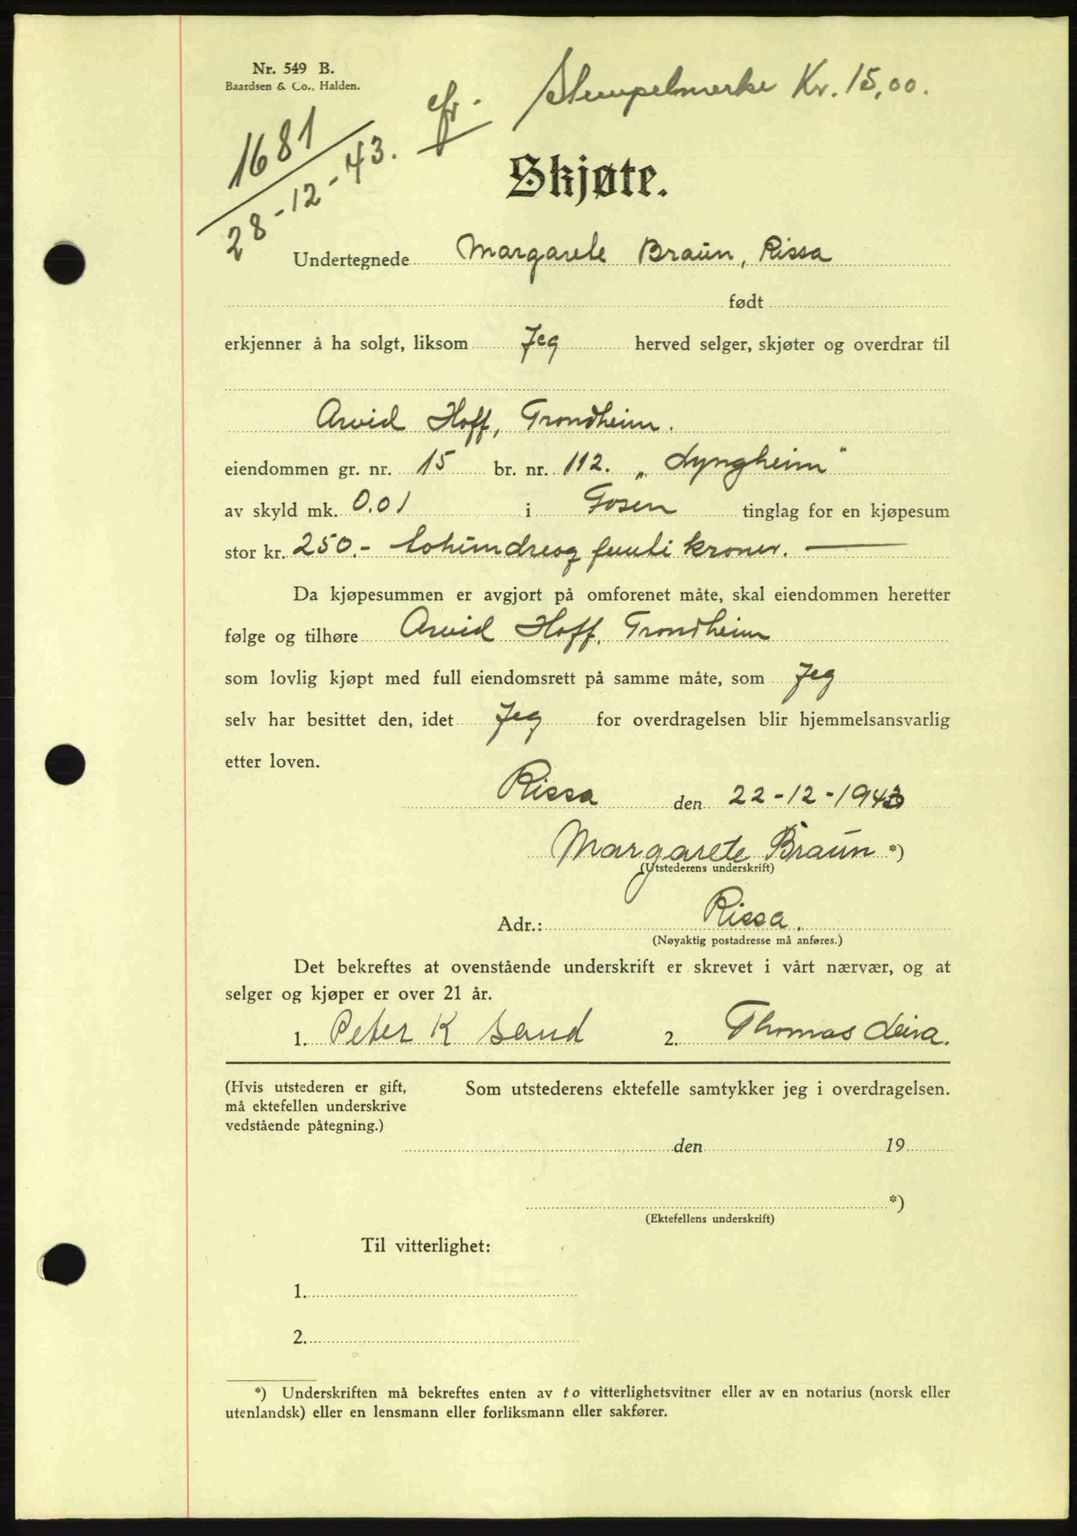 Nr. 549 B.
Baardsen & Co., Halden.
1681
28-12-43.
Stempelmerke Kr. 15,00.
Skjøte.
Undertegnede Margarete Braun, Rissa
født
erkjenner å ha solgt, liksom Jeg herved selger, skjøter og overdrar til
Arvid Hoff, Trondheim.
eiendommen gr. nr. 15 br. nr. 112. „Lyngheim"
av skyld mk. 0.01 i Fosen tinglag for en kjøpesum
stor kr. 250.- tohundreog femti kroner.
Da kjøpesummen er avgjort på omforenet måte, skal eiendommen heretter
følge og tilhøre Arvid Hoff, Trondheim
som lovlig kjøpt med full eiendomsrett på samme måte, som Jeg
selv har besittet den, idet Jeg for overdragelsen blir hjemmelsansvarlig
etter loven.
Rissa den 22-12-1943
Margarete Braun *)
(Utstederens underskrift)
Adr.: Rissa.
(Nøyaktig postadresse må anføres.)
Det bekreftes at ovenstående underskrift er skrevet i vårt nærvær, og at
selger og kjøper er over 21 år.
1. Peter K Sand 2. Thomas Leira.
(Hvis utstederen er gift,
må ektefellen underskrive
vedstående påtegning.)
Som utstederens ektefelle samtykker jeg i overdragelsen.
den 19
*)
(Ektefellens underskrift)
Til vitterlighet:
1.
2.
*) Underskriften må bekreftes enten av to vitterlighetsvitner eller av en notarius (norsk eller
utenlandsk) eller en lensmann eller forliksmann eller sakfører.